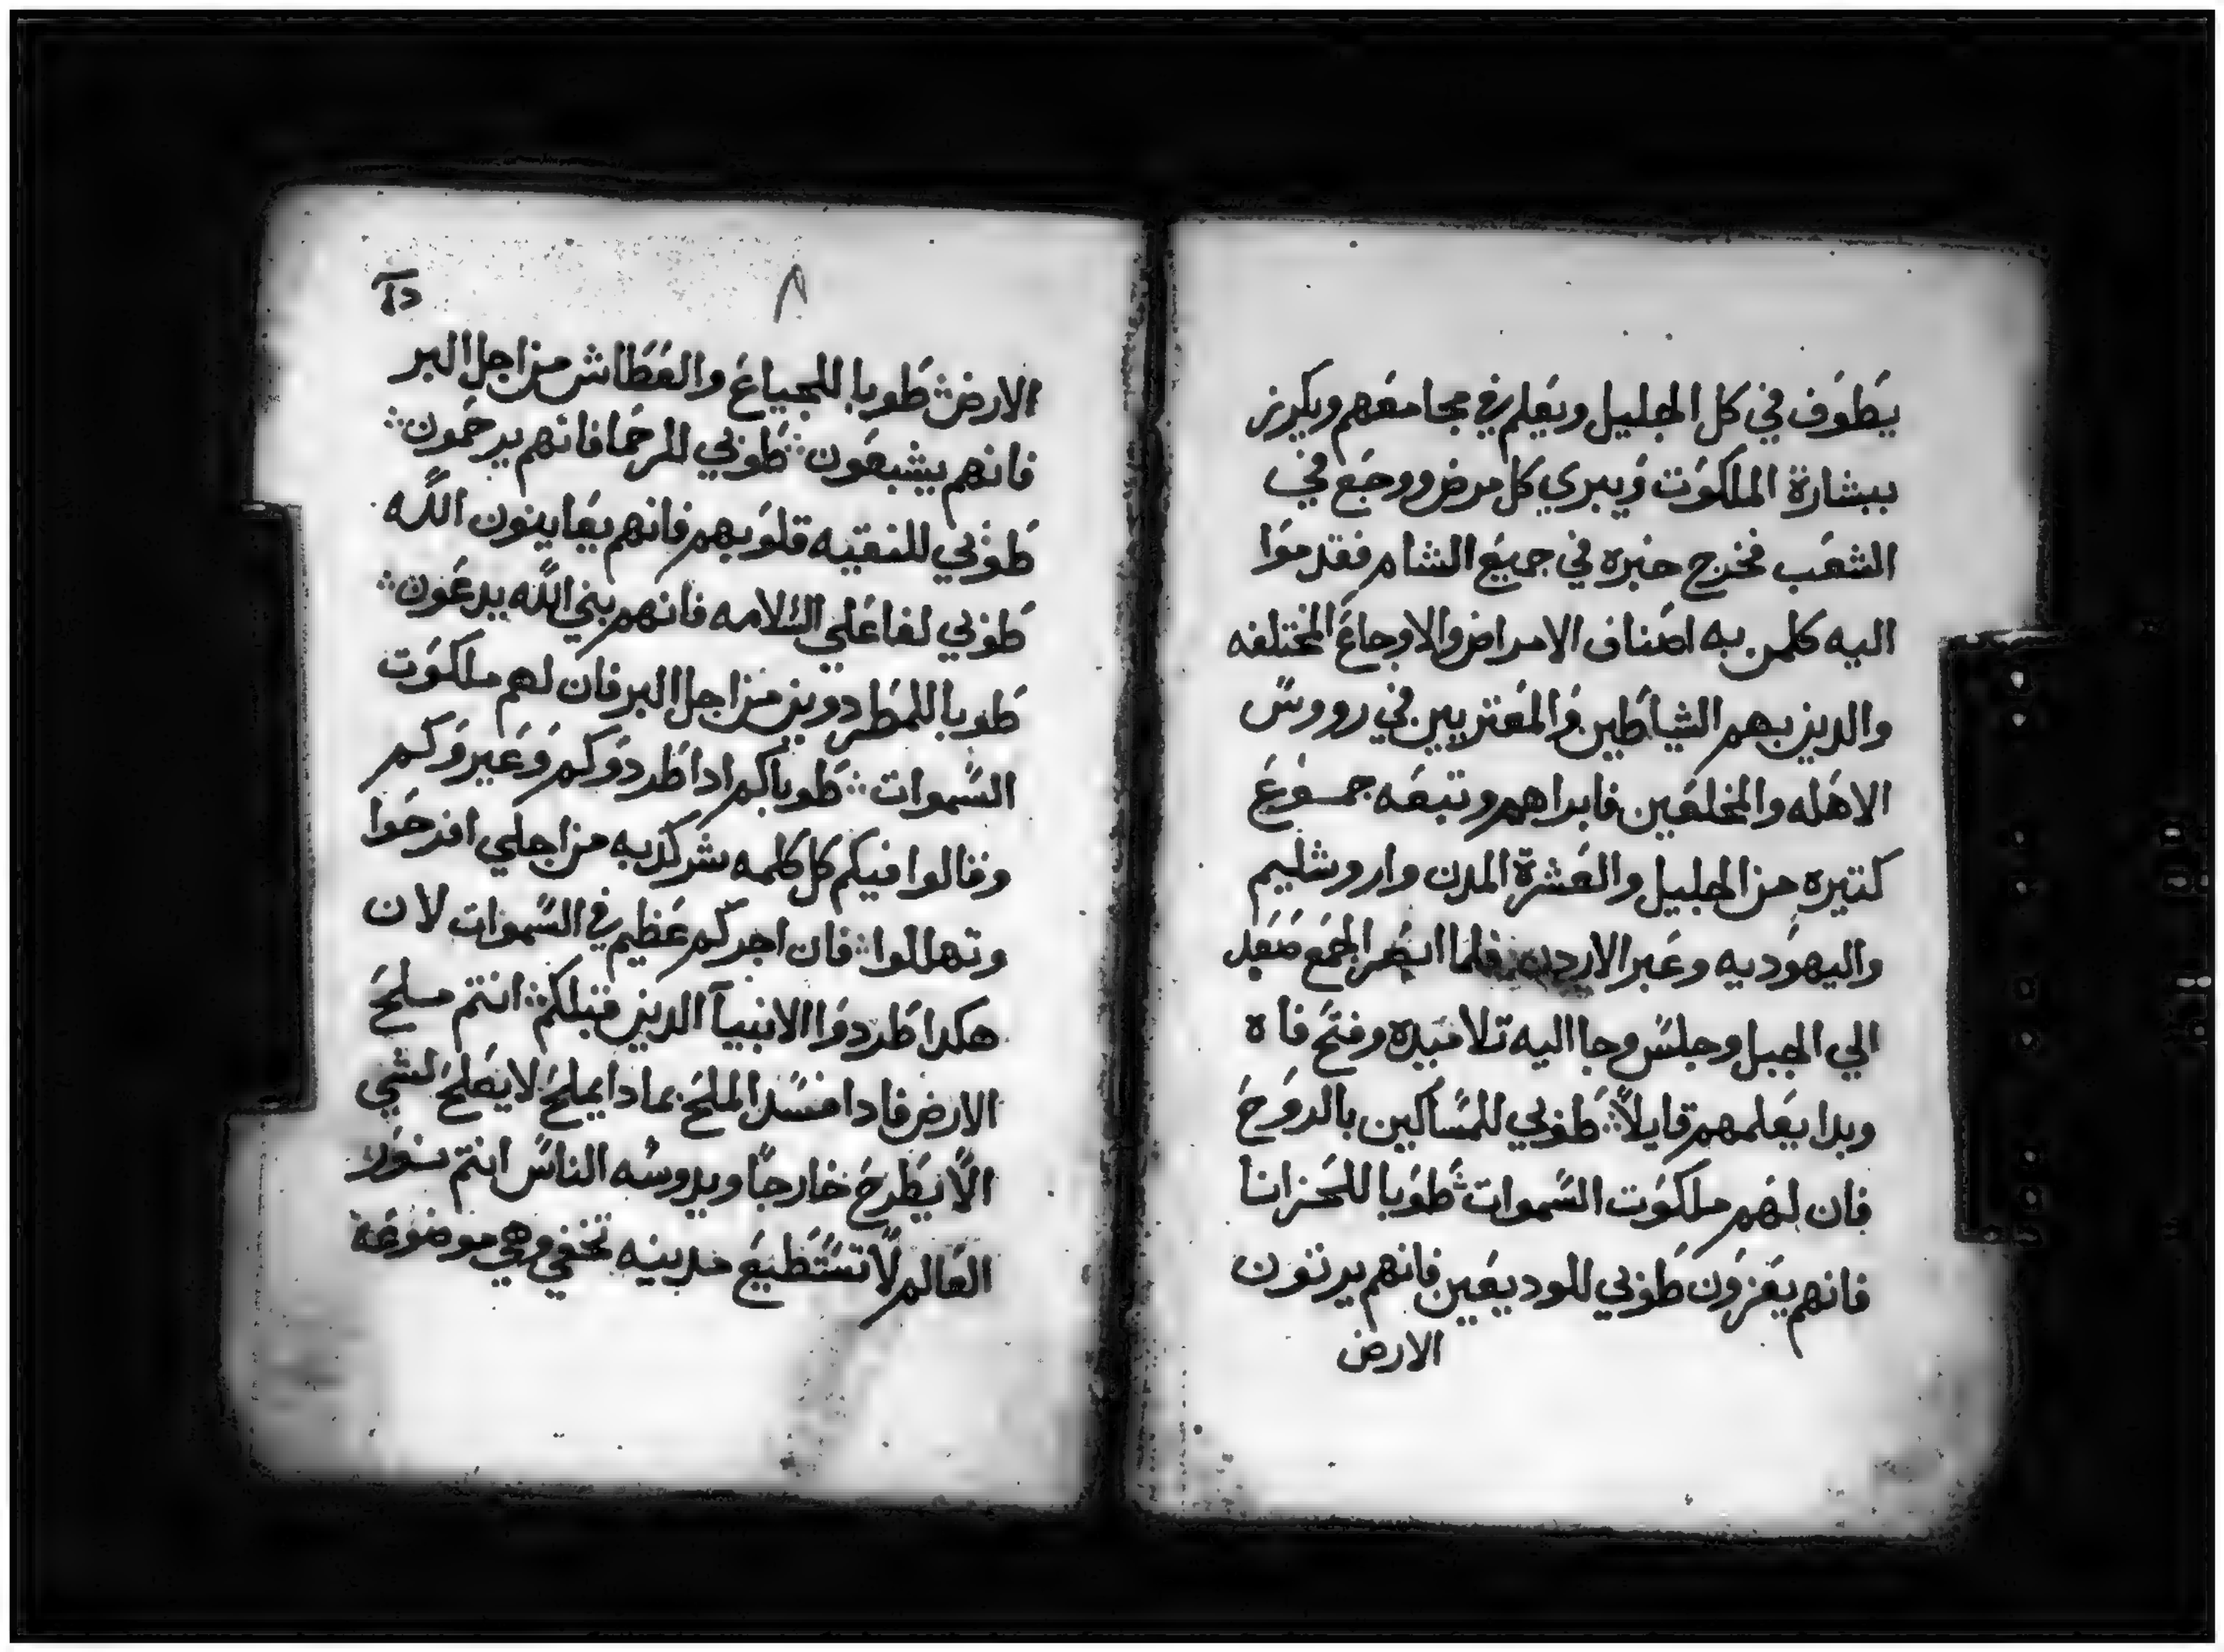 يطوف في كل الجليل ويعلم في مجامعهم ويكرز
ببشارة الملكوت ويبري كل مرض ووجع في
الشعب فخرج خبره في جميع الشام فقدموا
اليه كلمن به اصناف الامراض والاوجاع المختلفه
والدين بهم الشياطين والمعتريين في رووس
الاهله والمخلعين فابراهم وتبعه جموع
كتيره من الجليل والعشرة المدن واروشليم
واليهوديه وعبر الاردن فلما ابصر الجمع صعد
الي الجبل وجلس وجا اليه تلاميده وفتح فاه
وبدا يعلمهم قايلاً ⁘ طوبي للمساكين بالروح
فان لهم ملكوت السموات ⁘ طوبا للحزانا
فانهم يعزون طوبي للوديعين فانهم يرتون
الارض
٨
الارض ⁘ طوبا للجياع والعطاش من اجل البر
فانهم يشبعون ⁘ طوبي للرحما فانهم يرحمون ⁘
طوبي للنقيه قلوبهم فانهم يعاينون الله
طوبي لفاعلي السلامه فانهم بني الله يدعون ⁘
طوبا للمطرودين من اجل البر فان لهم ملكوت
السموات ⁘ طوباكم ادا طردوكم وعيروكم
وقالوا فيكم كل كلمه شر كذبه من اجلي افرحوا
وتهللوا ⁘ فان اجركم عظيم في السموات لان
هكدا طردوا الانبيآ الدين قبلكم ⁘ انتم ملح
الارض فادا فسد الملح بمادا يملح لا يصلح لشي
الا يطرح خارجًا ويدوسه الناس انتم نور
العالم لا تستطيع مدينه تخفي وهي موضوعه